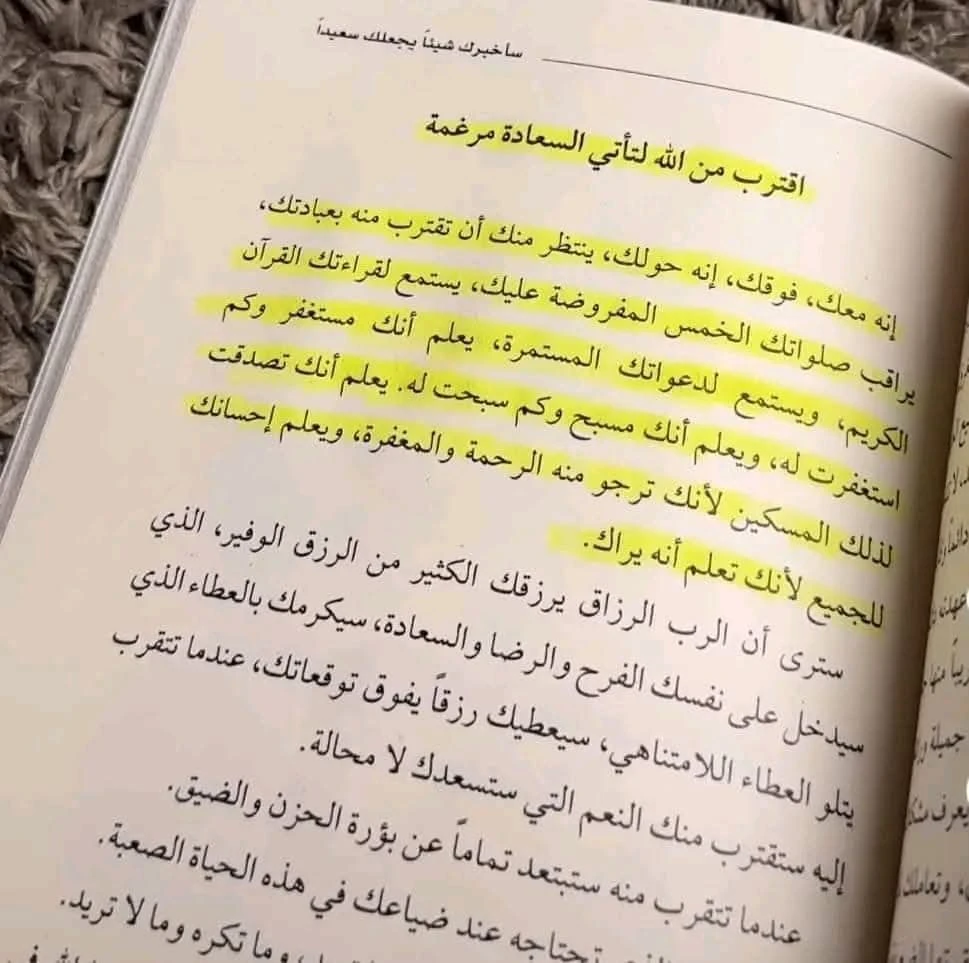 سأخبرك شيئاً يجعلك سعيداً
اقترب من الله لتأتي السعادة مرغمة
إنه معك، فوقك، إنه حولك، ينتظر منك أن تقترب منه بعبادتك،
يراقب صلواتك الخمس المفروضة عليك، يستمع لقراءتك القرآن
الكريم، ويستمع لدعواتك المستمرة، يعلم أنك مستغفر وكم
استغفرت له، ويعلم أنك مسبح وكم سبحت له. يعلم أنك تصدقت
لذلك المسكين لأنك ترجو منه الرحمة والمغفرة، ويعلم إحسانك
للجميع لأنك تعلم أنه يراك.
سترى أن الرب الرزاق يرزقك الكثير من الرزق الوفير، الذي
سيدخل على نفسك الفرح والرضا والسعادة، سيكرمك بالعطاء الذي
يتلو العطاء اللامتناهي، سيعطيك رزقاً يفوق توقعاتك، عندما تتقرب
إليه ستقترب منك النعم التي ستسعدك لا محالة.
عندما تتقرب منه ستبتعد تماماً عن بؤرة الحزن والضيق.
تحتاجه عند ضياعك في هذه الحياة الصعبة.
وما تكره وما لا تريد.